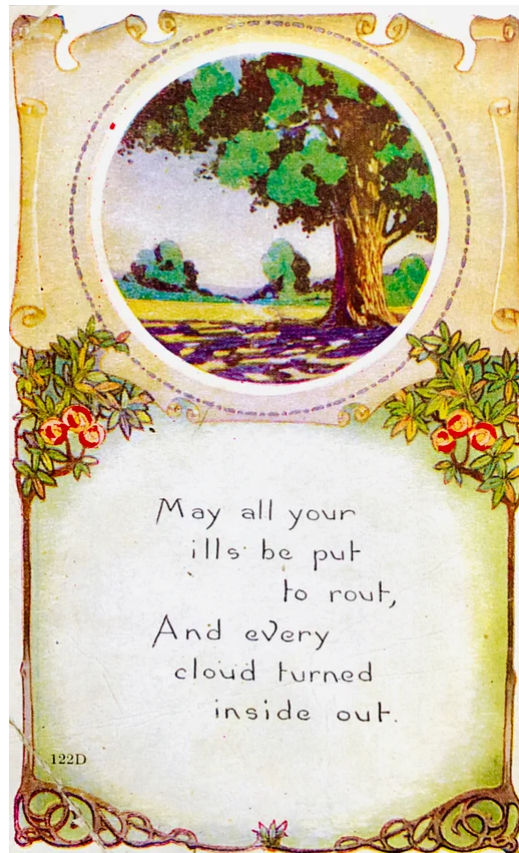 May all your
ills be put
to rout,
And every
cloud turned
inside out.
122D